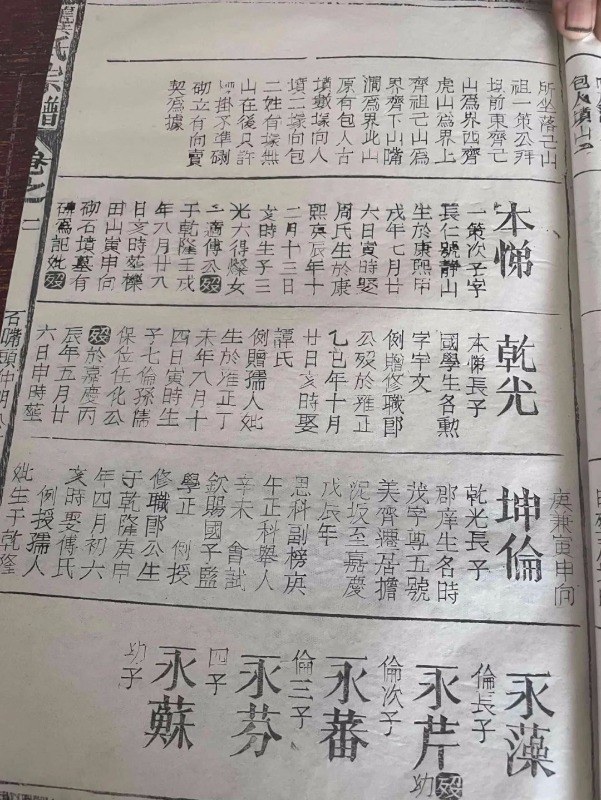 所坐落己山
祖一策公拜
山爲界西齊
虎山爲界上
齊祖己山爲
界齊下山嘴
澗爲界此山
原有包人古
墳墩塚向人
墳二塚向包
二姓有塚無
山在後只許
掛不準
砌立有向賣
契爲據
本悌
一策次子字
長仁號靜山
生於康熙甲
戌年七月廿
六日寅時娶
周氏生於康
熙庚辰年十
二月十三日
亥時生子三
光六得燦女
二適傅公歿
于乾隆壬戌
年八月廿八
日亥時葬櫟
田山寅申向
砌石墳墓有
碑爲記妣歿
乾光
本悌長子
國學生名勲
字宇文
例贈修職郎
公歿於雍正
乙巳年十月
廿日亥時娶
譚氏
例贈孺人妣
生於雍正丁
未年八月十
四日寅時生
子七倫孫儒
保位任化公
歿於嘉慶丙
辰年五月廿
六日申時葬
石嘴頭仲明公
庚兼寅申向
坤倫
乾光長子
郡庠生名時
茂字專五號
美齊遷居擔
坂至嘉慶
戊辰年
恩科副榜庚
午正科舉人
辛未 會試
欽賜國子監
學正 例授
修職郎公生
于乾隆庚申
年四月初六
亥時娶傅氏
例授孺人
妣生于乾隆
永藻
倫長子
永芹 幼歿
倫次子
永蕃
倫三子
永芬
四子
永蘇
幼子
氏宗譜 卷之二